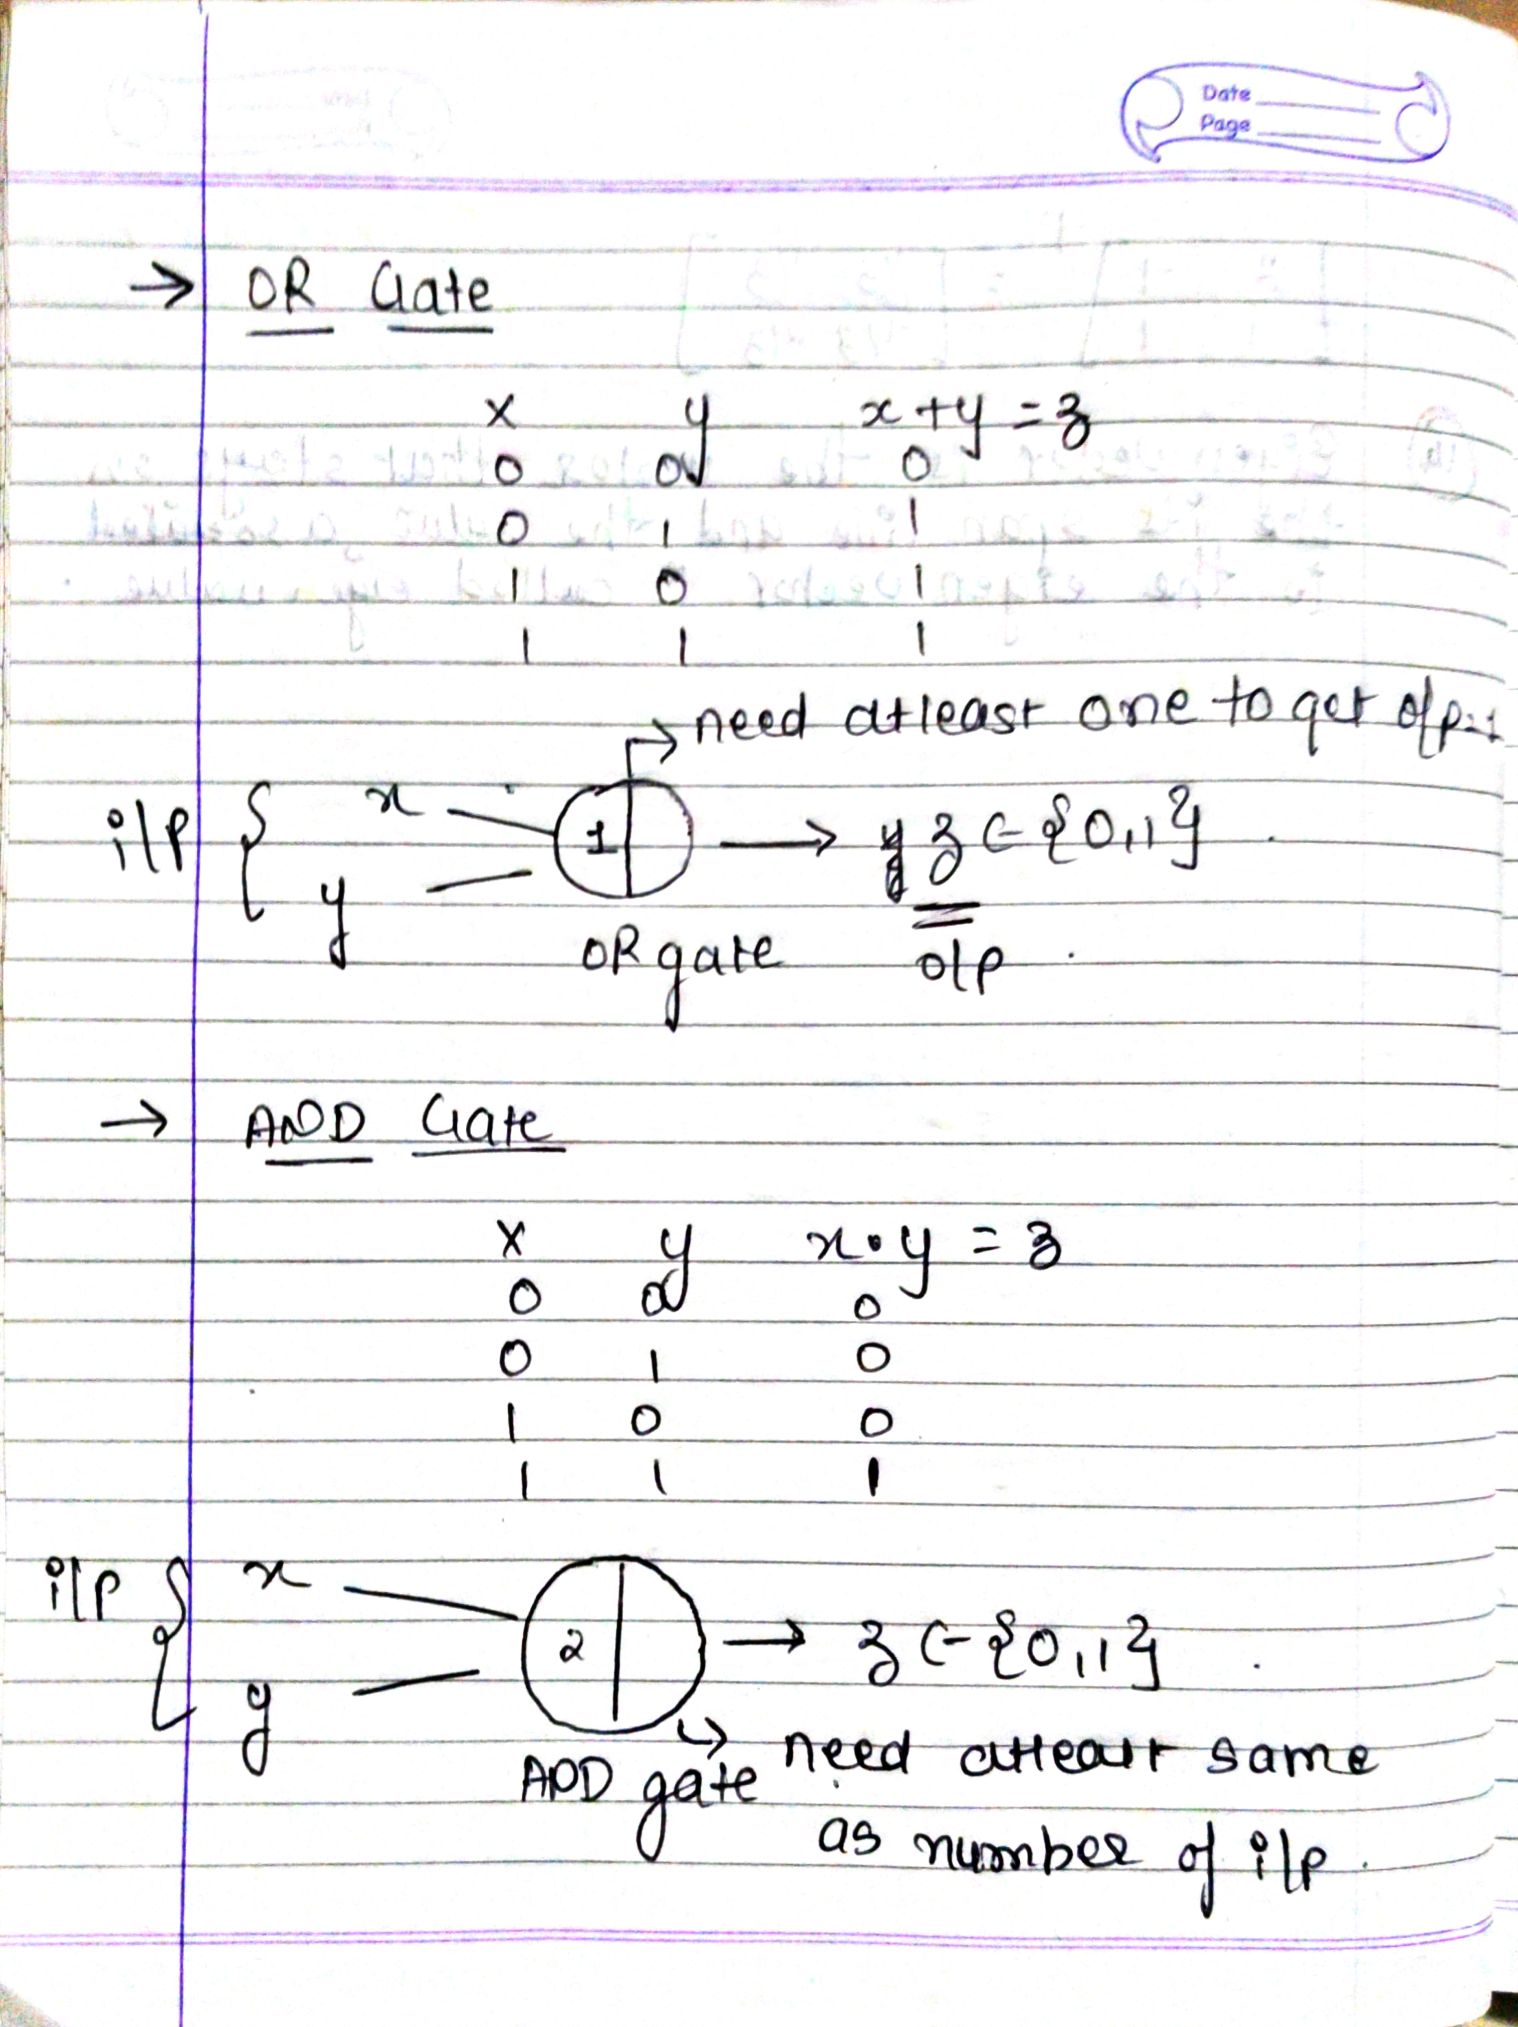 Date
Page
→ OR Gate
x y x+y=z
0 0 0
0 1 1
1 0 1
1 1 1
→ need atleast one to get o/p=1
i/p { x
1 → z ∈ {0,1}
y
OR gate o/p
→ AND Gate
x y x•y = z
0 0 0
0 1 0
1 0 0
1 1 1
i/p { x
2 → z ∈ {0,1}
y
AND gate ↳ need atleast same
as number of i/p.